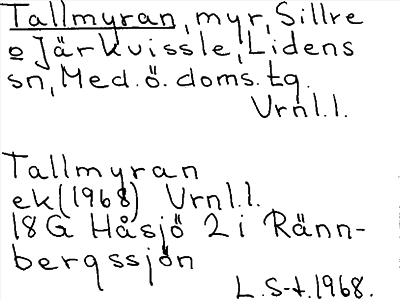 Tallmyran, myr, Sillre
o Järkvissle, Lidens
sn, Med. ö. doms. tg.
Vrnl.l.
Tallmyran
ek (1968) Vrnl.l.
18G Håsjö 2 i Ränn-
bergssjön
L.S-t. 1968.